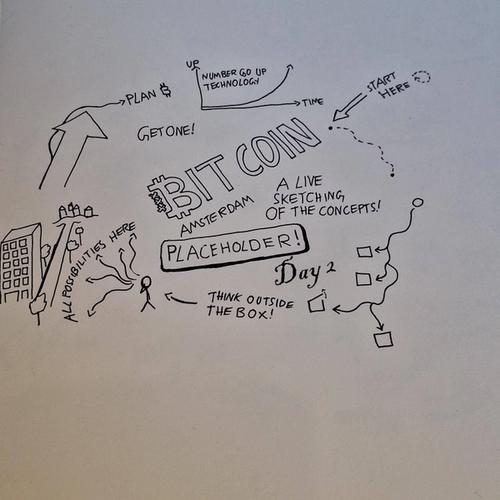 UP
NUMBER GO UP
TECHNOLOGY
TIME
PLAN ₿
START
HERE
GET ONE!
₿IT COIN
AMSTERDAM
A LIVE
SKETCHING
OF THE CONCEPTS!
PLACEHOLDER!
Day 2
ALL POSIBILITIES HERE
THINK OUTSIDE
THE BOX!